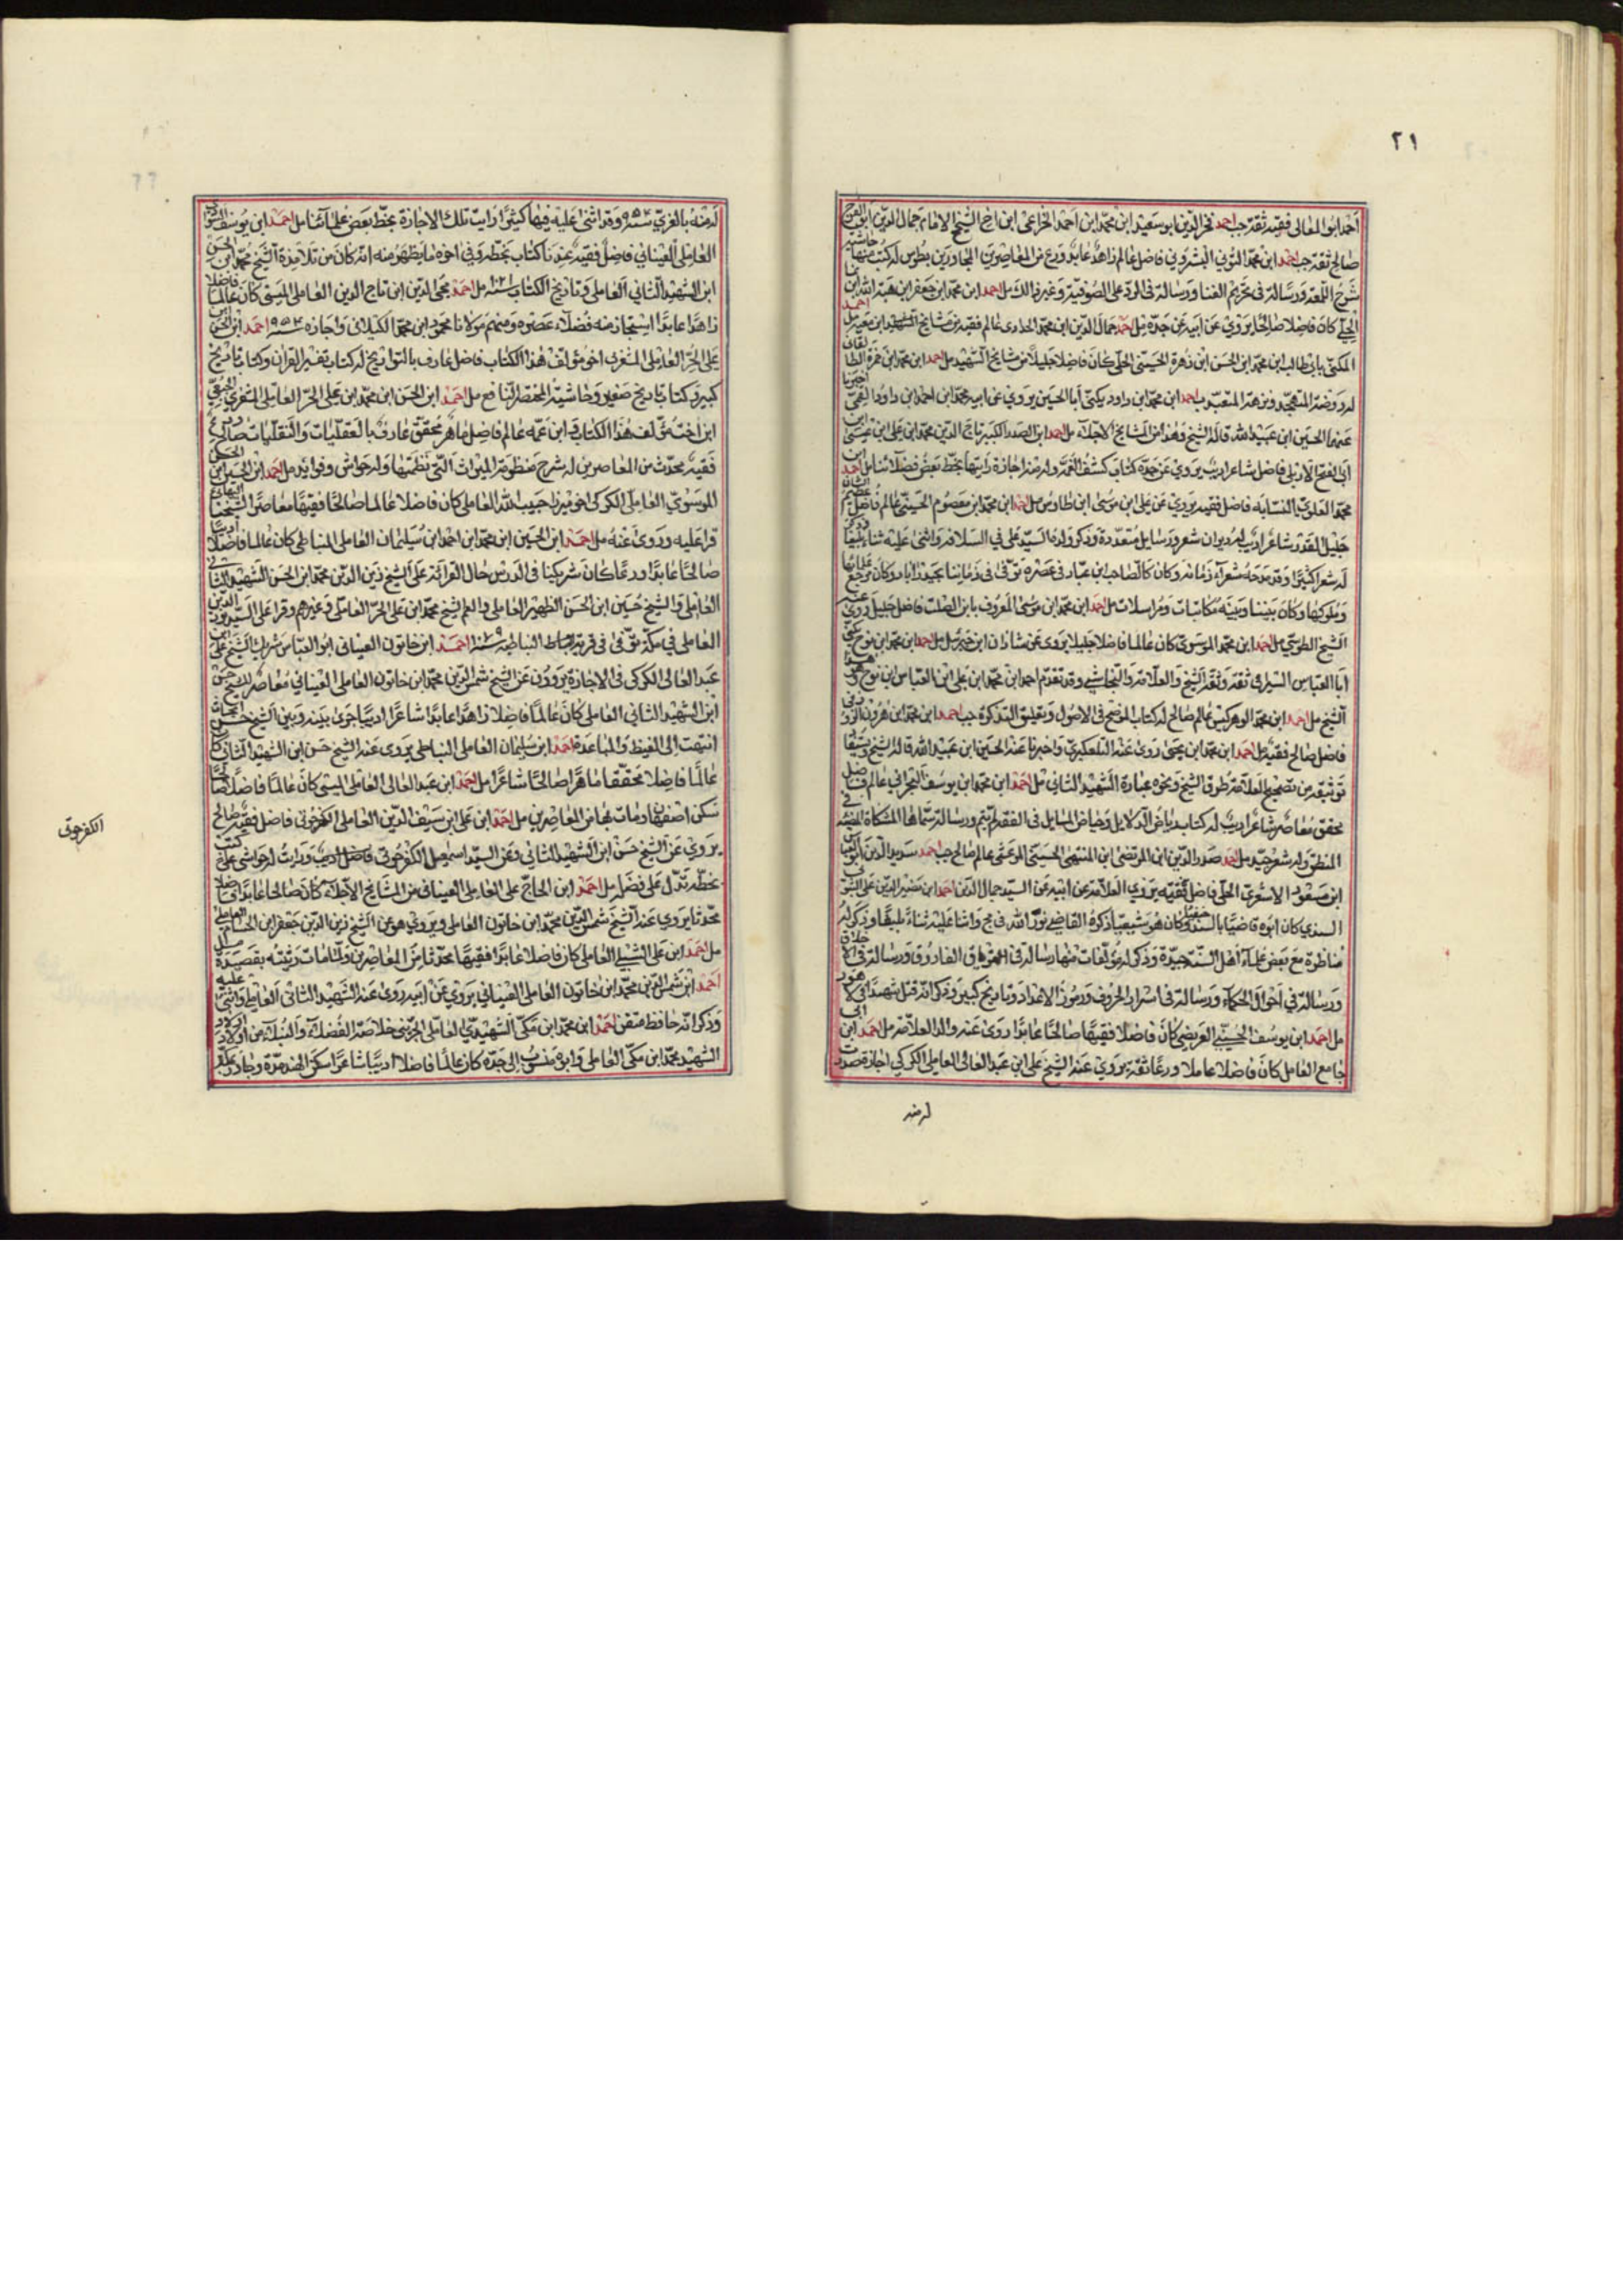 ٢١
احمد ابو المعالى فقيه ثقة جب احمد فخر الدين ابو سعيد ابن محمد ابن احمد الخزاعى ابن اخ الشيخ الامام جمال الدين ابو الفتوح
صالح ثقة جب احمد ابن محمد التونى البشروى فاضل عالم زاهد عابد ورع من المعاصرين المجاورين بطوس له كتب منها حاشية
شرح اللمعة ورسالة فى تحريم الغنا ورسالة فى الرد على الصوفية وغير ذالك مل احمد ابن محمد ابن جعفر ابن هبة الله ابن نما
الحلى كان فاضلا صالحا يروى عن ابيه عن جده مل احمد جمال الدين ابن محمد الحدادى عالم فقيه من مشايخ الشهيد ابن معية مل احمد
المكنى بابى طالب ابن محمد ابن الحسن ابن زهرة الحسينى الحلى كان فاضلا جليلا من مشايخ الشهيد مل احمد ابن محمد ابن حمزة الطا
له روضة المتهجد ونزهة المتعبد جب احمد ابن محمد ابن داود يكنى ابا الحسين يروى عن ابيه محمد ابن احمد ابن داود القمى اخبرنا
عنهما الحسين ابن عبيد الله قاله الشيخ وهذا من المشايخ الاجلاء مل احمد ابن الصدر الكبير تاج الدين محمد ابن على ابن عيسى ابن
ابى الفتح الاربلى فاضل شاعر اديب يروى عن جده كتاب كشف الغمة وله منه اجازة رايتها بخط بعض فضلائنا مل احمد ابن
محمد العلوى النسابه فاضل فقيه يروى عن على ابن موسى ابن طاوس مل احمد ابن محمد ابن معصوم الحسينى عالم فاضل عظيم الشان
جليل القدر شاعر اديب له ديوان شعر ورسايل متعددة وذكره ولده السيد على فى السلافة واثنى عليه ثناء بليغا وذكر
له شعرا كثيرا وقد مدحه شعراء زمانه وكان كالصاحب ابن عباد فى عصره توفى فى زماننا بحيدر اباد وكان مرجع علمائها
وملوكها وكان بيننا وبينه مكاتبات ومراسلات مل احمد ابن محمد ابن موسى المعروف بابن الصلت فاضل جليل روى عنه
الشيخ الطوسى مل احمد ابن محمد الموسوى كان عالما فاضلا جليلا يروى عن شاذان ابن جبرئيل مل احمد ابن محمد ابن نوح يكنى
ابا العباس السيرافى ثقة وثقه الشيخ والعلامة والنجاشى وقد تقدم احمد ابن محمد ابن على ابن العباس ابن نوح هو هذا
الشيخ مل احمد ابن محمد الوهركيسى عالم صالح له كتاب الموضح فى الاصول وتعليق التذكرة جب احمد ابن محمد ابن هرون الزوزنى
فاضل صالح فقيه مل احمد ابن محمد ابن يحيى روى عنه التلعكبرى واخبرنا عنه الحسين ابن عبيد الله قاله الشيخ ويستفاد
توثيقه من تصحيح العلامة طرق الشيخ ونحوه عبارة الشهيد الثانى مل احمد ابن محمد ابن يوسف البحرانى عالم فاضل
محقق معاصر شاعر اديب له كتاب رياض الدلايل وحياض المسايل فى الفقه لم يتم ورسالة سماها المشكاة المضيئة فى
المنطق وله شعر جيد مل احمد صدر الدين ابن المرتضى ابن المنتهى الحسينى المرعشى عالم صالح جب احمد سديد الدين ابو العباس
ابن مسعود الاسدى الحلى فاضل فقيه يروى العلامة عن ابيه عن السيد جمال الدين احمد ابن نصير الدين على التتوى
السندى كان ابوه قاضيا بالسند وكان هو شيعيا ذكره القاضى نور الله فى مج واثنا عليه ثناء بليغا وذكر له
مناظرة مع بعض علماء اهل السنة جيدة وذكر له مؤلفات منها رسالة فى الترياق الفاروق ورسالة فى الاخلاق
ورسالة فى احوال الحكماء ورسالة فى اسرار الحروف ورموز الاعداد وتاريخ كبير وذكر انه قتل شهيدا فى لاهور
مل احمد ابن يوسف الحسينى العريضى كان فاضلا فقيها صالحا عابدا روى عنه والد العلامة مل احمد ابن ابى
جامع العامل كان فاضلا عاملا ورعا ثقة يروى عنه الشيخ على ابن عبد العالى العاملى الكركى اجازة صدرت
له منه
له منه بالغرى سنة ٩٥٢ وقد اثنى عليه فيها كثيرا رايت تلك الاجازة بخط بعض علمائنا مل احمد ابن يوسف السوادى
العاملى العيناثى فاضل فقيه عندنا كتاب بخطه وفى اخره ما يظهر منه انه كان من تلامذة الشيخ محمد ابن الحسن
ابن الشهيد الثانى العاملى وتاريخ الكتاب ١٠٢١ سنة مل احمد محى الدين ابن تاج الدين العاملى الميسى كان عالما فاضلا
زاهدا عابدا استجاز منه فضلاء عصره ومنهم مولانا محمود ابن محمد الكيلانى واجازه سنة ٩٥٤ احمد ابن الحسن ابن
على الحر العاملى المشغرى اخو مؤلف هذا الكتاب فاضل عارف بالتواريخ له كتاب تفسير القران وكتاب تاريخ
كبير وكتاب تاريخ صغير وحاشية المختصر النافع مل احمد ابن الحسن ابن محمد ابن على الحر العاملى المشغرى الجبعى
ابن اخت مؤلف هذا الكتاب وابن عمه عالم فاضل ماهر محقق عارف بالعقليات والنقليات صالح ورع
فقيه محدث من المعاصرين له شرح منظومة الميراث التى نظمتها وله حواش وفوايد مل احمد ابن الحسين ابن الحسن
الموسوى العاملى الكركى اخو ميرزا حبيب الله العاملى كان فاضلا عالما صالحا فقيها معاصرا لشيخنا البهائى
قرا عليه وروى عنه مل احمد ابن الحسين ابن محمد ابن احمد ابن سليمان العاملى النباطى كان عالما فاضلا اديبا
صالحا عابدا ورعا كان شريكنا فى الدرس حال القرائة على الشيخ زين الدين محمد ابن الحسن الشهيد الثانى
العاملى والشيخ حسين ابن الحسن الظهير العاملى والعم الشيخ محمد ابن على الحر العاملى وغيرهم وقرا على السيد نور الدين
العاملى فى مكة توفى فى قرية النباطية سنة ١٠٧٩ احمد ابن خاتون العيناثى ابو العباس شريك الشيخ على ابن
عبد العالى الكركى فى الاجازة يروون عن الشيخ شمس الدين محمد ابن خاتون العاملى العيناثى معاصر للشيخ حسن
ابن الشهيد الثانى العاملى كان عالما فاضلا زاهدا عابدا شاعرا اديبا جرى بينه وبين الشيخ حسن ابحاث
انتهت الى الغيظ والمباعدة احمد ابن سليمان العاملى النباطى يروى عنه الشيخ حسن ابن الشهيد الثانى كان
عالما فاضلا محققا ماهرا صالحا شاعرا مل احمد ابن عبد العالى العاملى الميسى كان عالما فاضلا صالحا
سكن اصفهان ومات بها من المعاصرين مل احمد ابن على ابن سيف الدين العاملى الكفرحونى فاضل فقيه صالح
يروى عن الشيخ حسن ابن الشهيد الثانى وعن السيد اسمعيل الكفرحونى فاضل اديب ورايت له حواشى على كتب
بخطه تدل على فضله مل احمد ابن الحاج على العاملى العيناثى من المشايخ الاجلاء كان صالحا عابدا فاضلا
محدثا يروى عنه الشيخ شمس الدين محمد ابن خاتون العاملى ويروى هو عن الشيخ زين الدين جعفر ابن الحسام العاملى
مل احمد ابن على الشبيلى العاملى كان فاضلا عابدا فقيها محدثا من المعاصرين ولما مات رثيته بقصيدة
احمد ابن شمس الدين محمد ابن خاتون العاملى العيناثى يروى عن ابيه روى عنه الشهيد الثانى العاملى واثنى عليه
وذكر انه حافظ متقن احمد ابن محمد ابن مكى الشهيدى العاملى الجزينى خلاصة الفضلاء والنبلاء من اولاد
الشهيد محمد ابن مكى العاملى وابوه منسوب الى جده كان عالما فاضلا اديبا شاعرا سكن الهند مدة وجاور
الكفرحونى